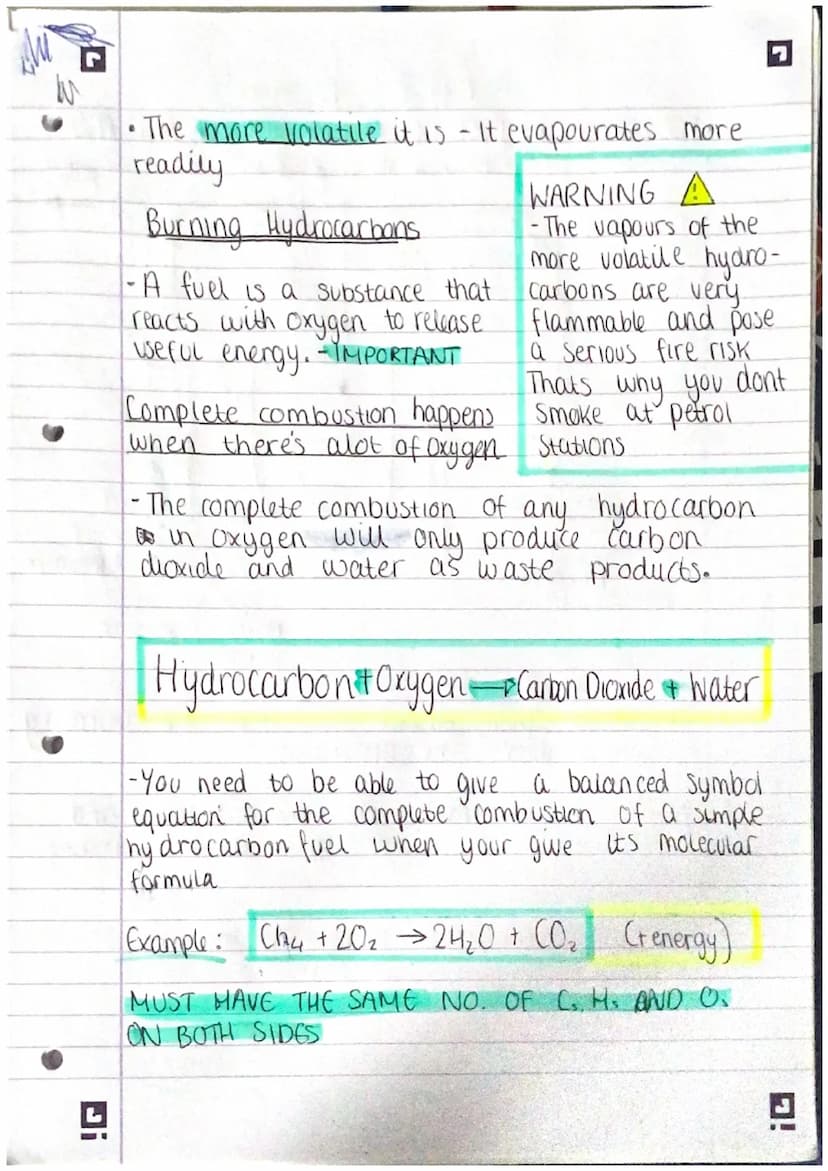 • The more volatile it is - It evapourates more
readily
Burning Hydrocarbons
- A fuel is a substance that
reacts with oxygen to release
useful energy. - IMPORTANT
WARNING ⚠
- The vapours of the
more volatile hydro-
carbons are very
flammable and pose
a serious fire risk
Thats why you dont
smoke at petrol
stations
Complete combustion happens
when there's alot of oxygen
- The complete combustion of any hydrocarbon
in oxygen will only produce carbon
dioxide and water as waste products.
Hydrocarbon + Oxygen → Carbon Dioxide + Water
- You need to be able to give a balanced symbol
equation for the complete combustion of a simple
hydrocarbon fuel when your give its molecular
formula
Example: Ch₄ + 2O₂ → 2H₂O + CO₂ (+energy)
MUST HAVE THE SAME NO. OF Cs, Hs AND Os
ON BOTH SIDES